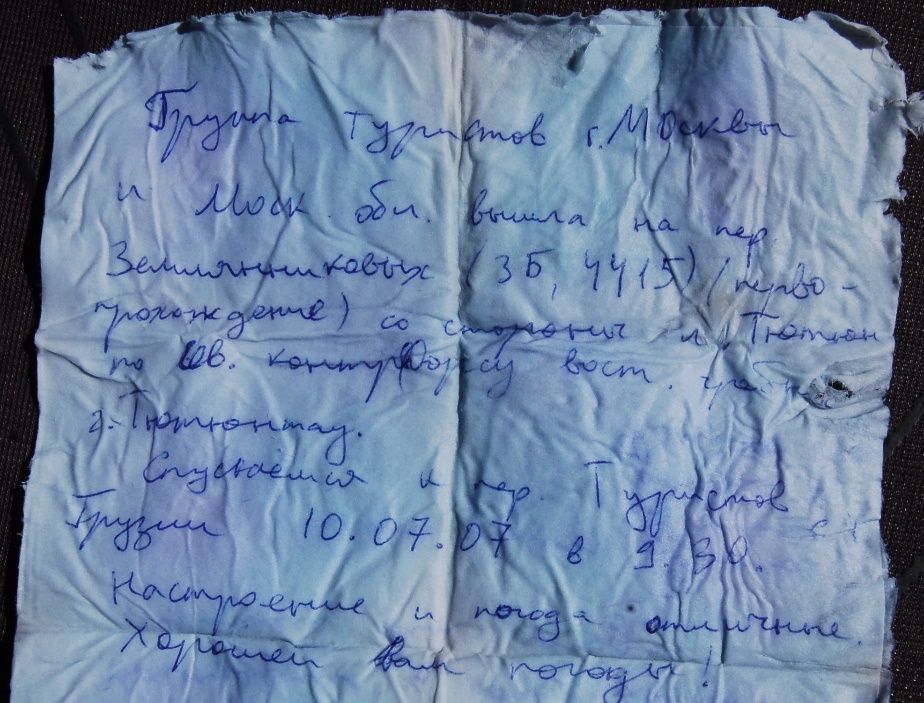 Группа туристов г. Москвы
и Моск. обл. вышла на пер.
Землянниковых (3Б, 4415) (перво-
прохождение) со стороны л. Тютюн
по юв. контрфорсу вост. гребня
г. Тютюнтау.
Спускаемся к пер. Туристов
Грузии 10.07.07 в 9.30.
Настроение и погода отличные.
Хорошей Вам погоды!